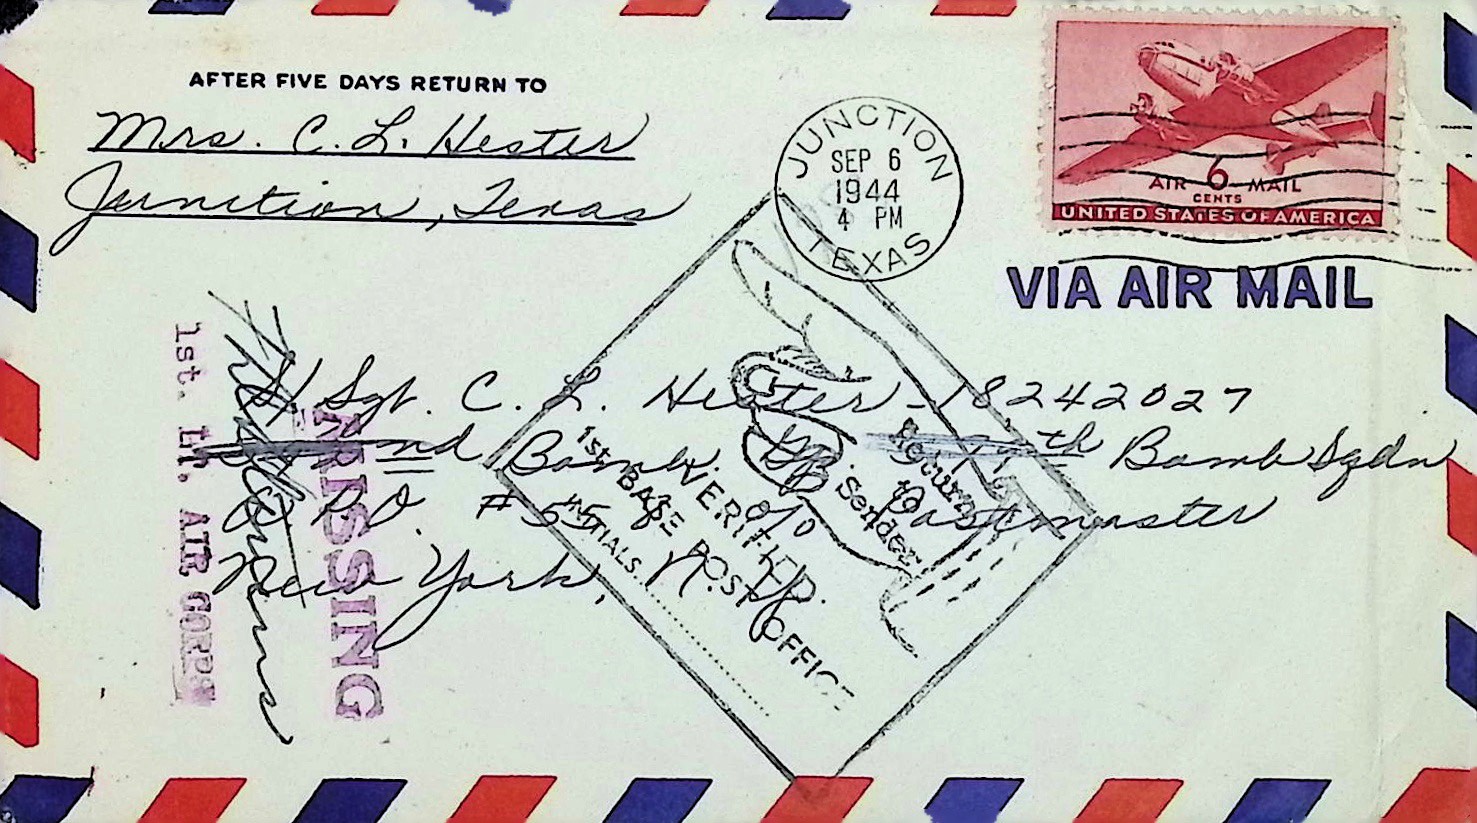 AFTER FIVE DAYS RETURN TO
Mrs. C. L. Hester
Junction, Texas
JUNCTION
SEP 6
1944
4 PM
TEXAS
AIR 6 MAIL
CENTS
UNITED STATES OF AMERICA
VIA AIR MAIL
S/Sgt. C. L. Hester - 18242027
nd Bomb. GP. th Bomb Sqdn
A.P.O. #558 c/o Postmaster
New York,
MISSING
1st. Lt. AIR CORPS
Return
to
Sender
VERIFIED.
1st BASE POST OFFICE
INITIALS